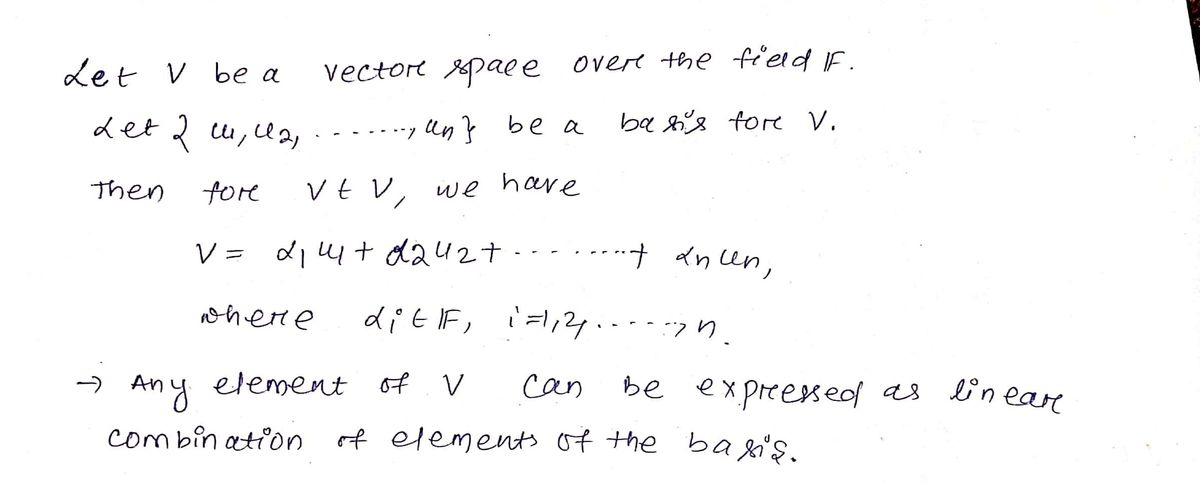 Let V be a vector space over the field F.
Let { u1, u2, ........, un } be a basis for V.
Then for v ∈ V, we have
V = α1 u1 + α2 u2 + ......... + αn un,
where αi ∈ F, i=1,2,......, n.
→ Any element of V can be expressed as linear
combination of elements of the basis.